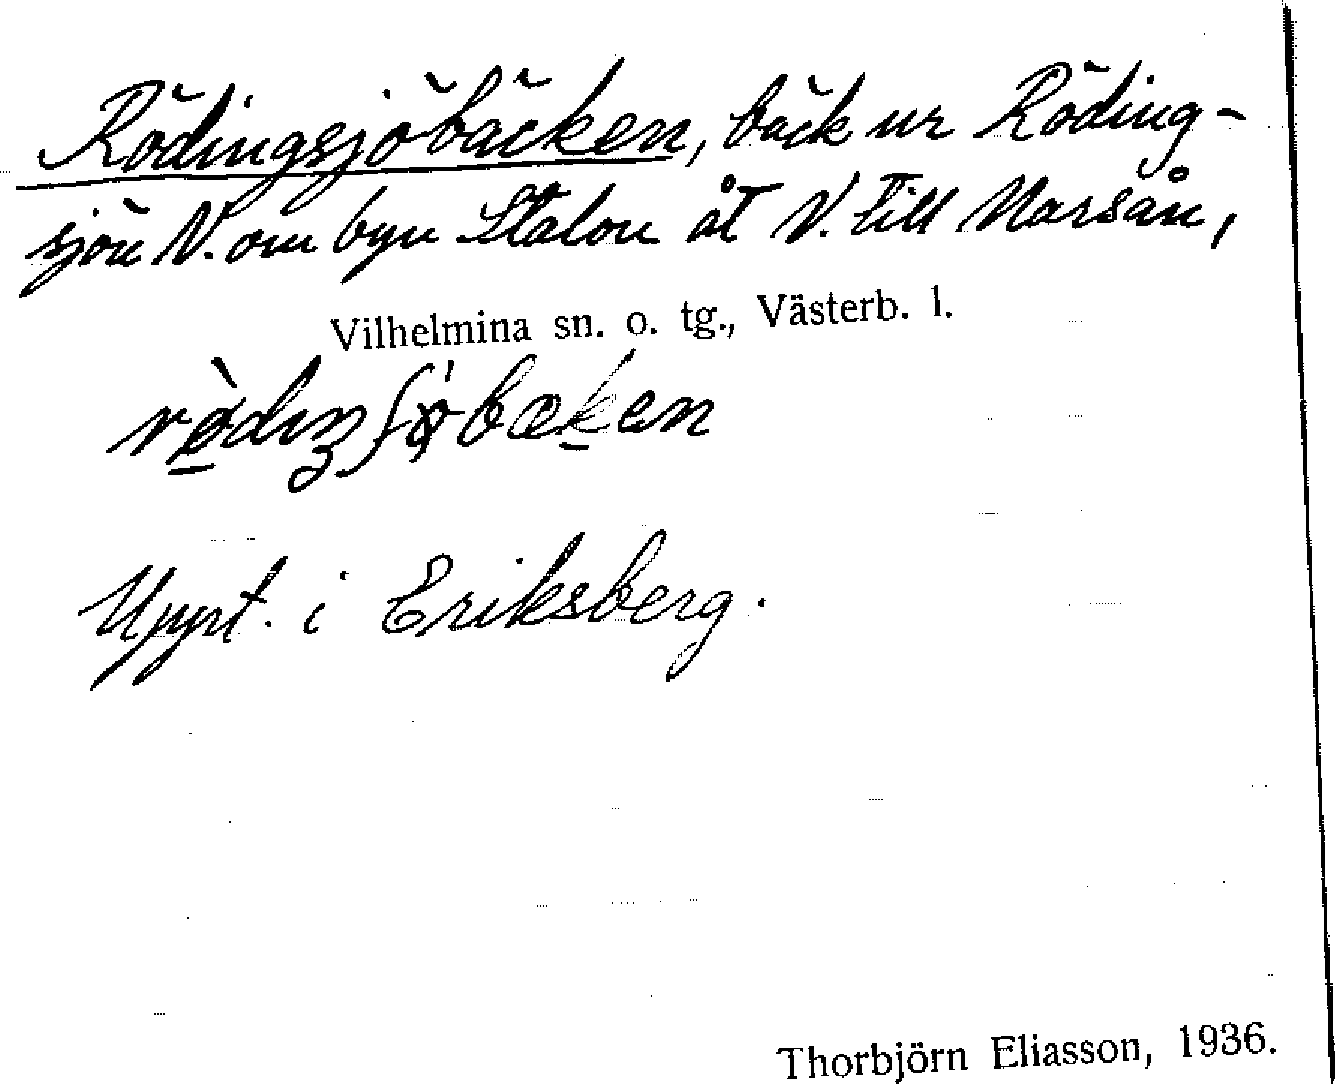 Rödingsjöbäcken, bäck ur Röding-
sjön N. om byn Stalon åt V. till Marsån,
Vilhelmina sn. o. tg., Västerb. l.
Uppt. i Eriksberg.
Thorbjörn Eliasson, 1936.